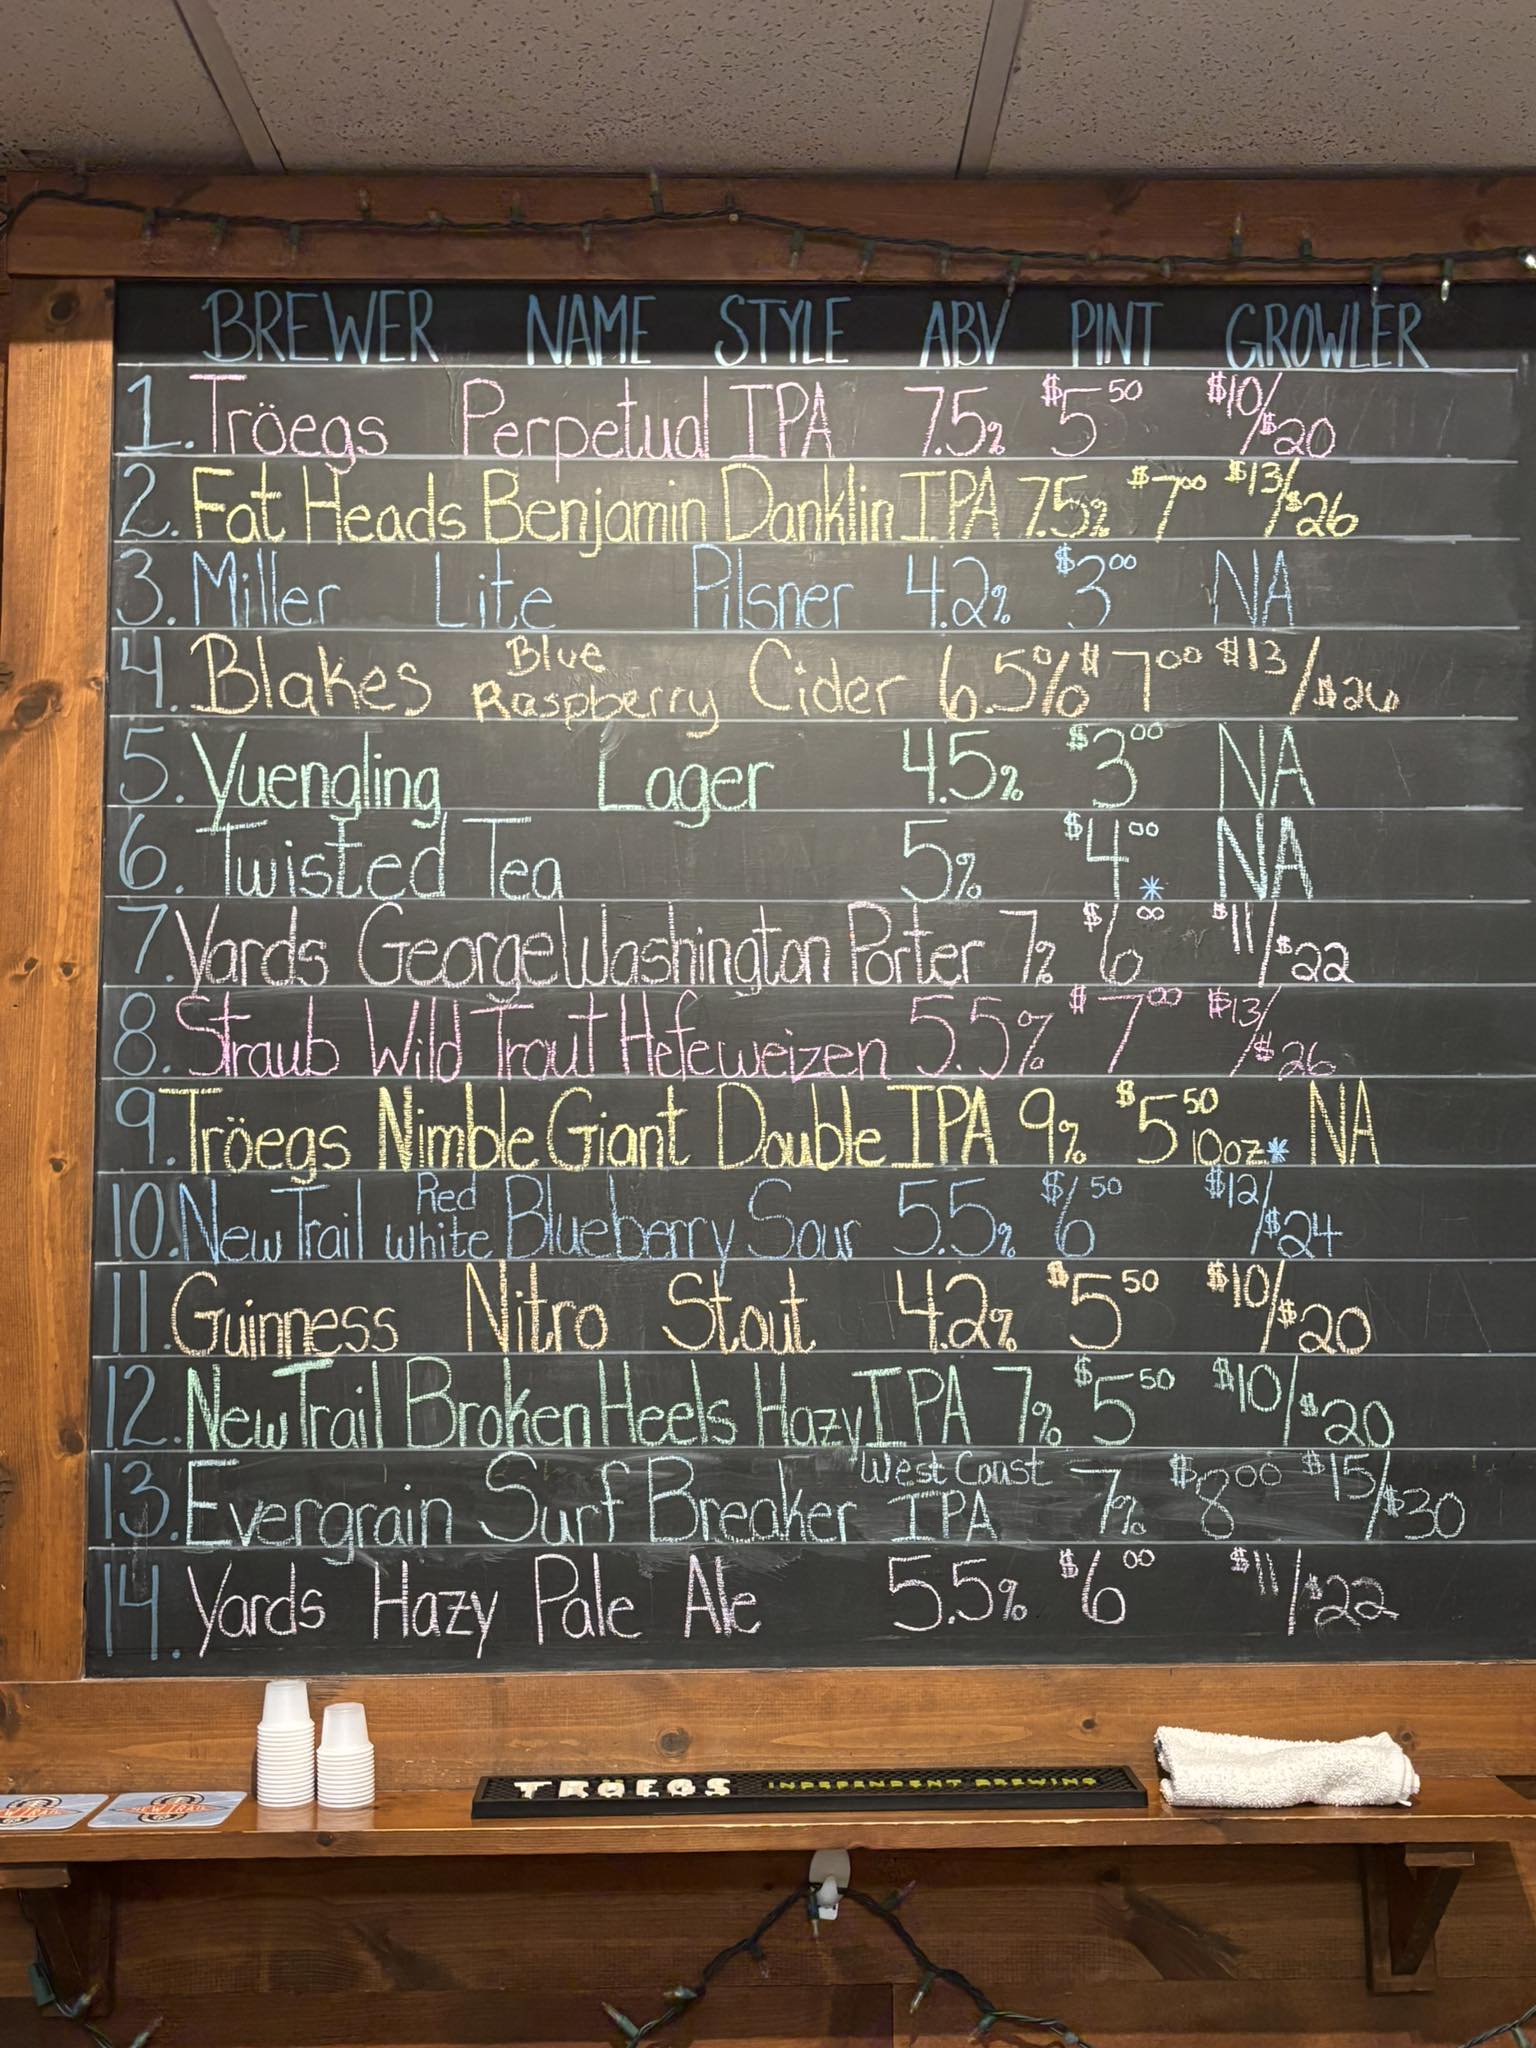 BREWER NAME STYLE ABV PINT GROWLER
1. Tröegs Perpetual IPA 7.5% $5 50 $10/$20
2. Fat Heads Benjamin Danklin IPA 7.5% $7 00 $13/$26
3. Miller Lite Pilsner 4.2% $3 00 NA
4. Blakes Blue Raspberry Cider 6.5% $7 00 $13/$26
5. Yuengling Lager 4.5% $3 00 NA
6. Twisted Tea 5% $4 00 * NA
7. Yards George Washington Porter 7% $6 00 $11/$22
8. Straub Wild Trout Hefeweizen 5.5% $7 00 $13/$26
9. Tröegs Nimble Giant Double IPA 9% $5 50 10oz* NA
10. New Trail Red White Blueberry Sour 5.5% $6 50 $12/$24
11. Guinness Nitro Stout 4.2% $5 50 $10/$20
12. New Trail Broken Heels Hazy IPA 7% $5 50 $10/$20
13. Evergrain Surf Breaker West Coast IPA 7% $8 00 $15/$30
14. Yards Hazy Pale Ale 5.5% $6 00 $11/$22
TRÖEGS INDEPENDENT BREWING
NEW TRAIL